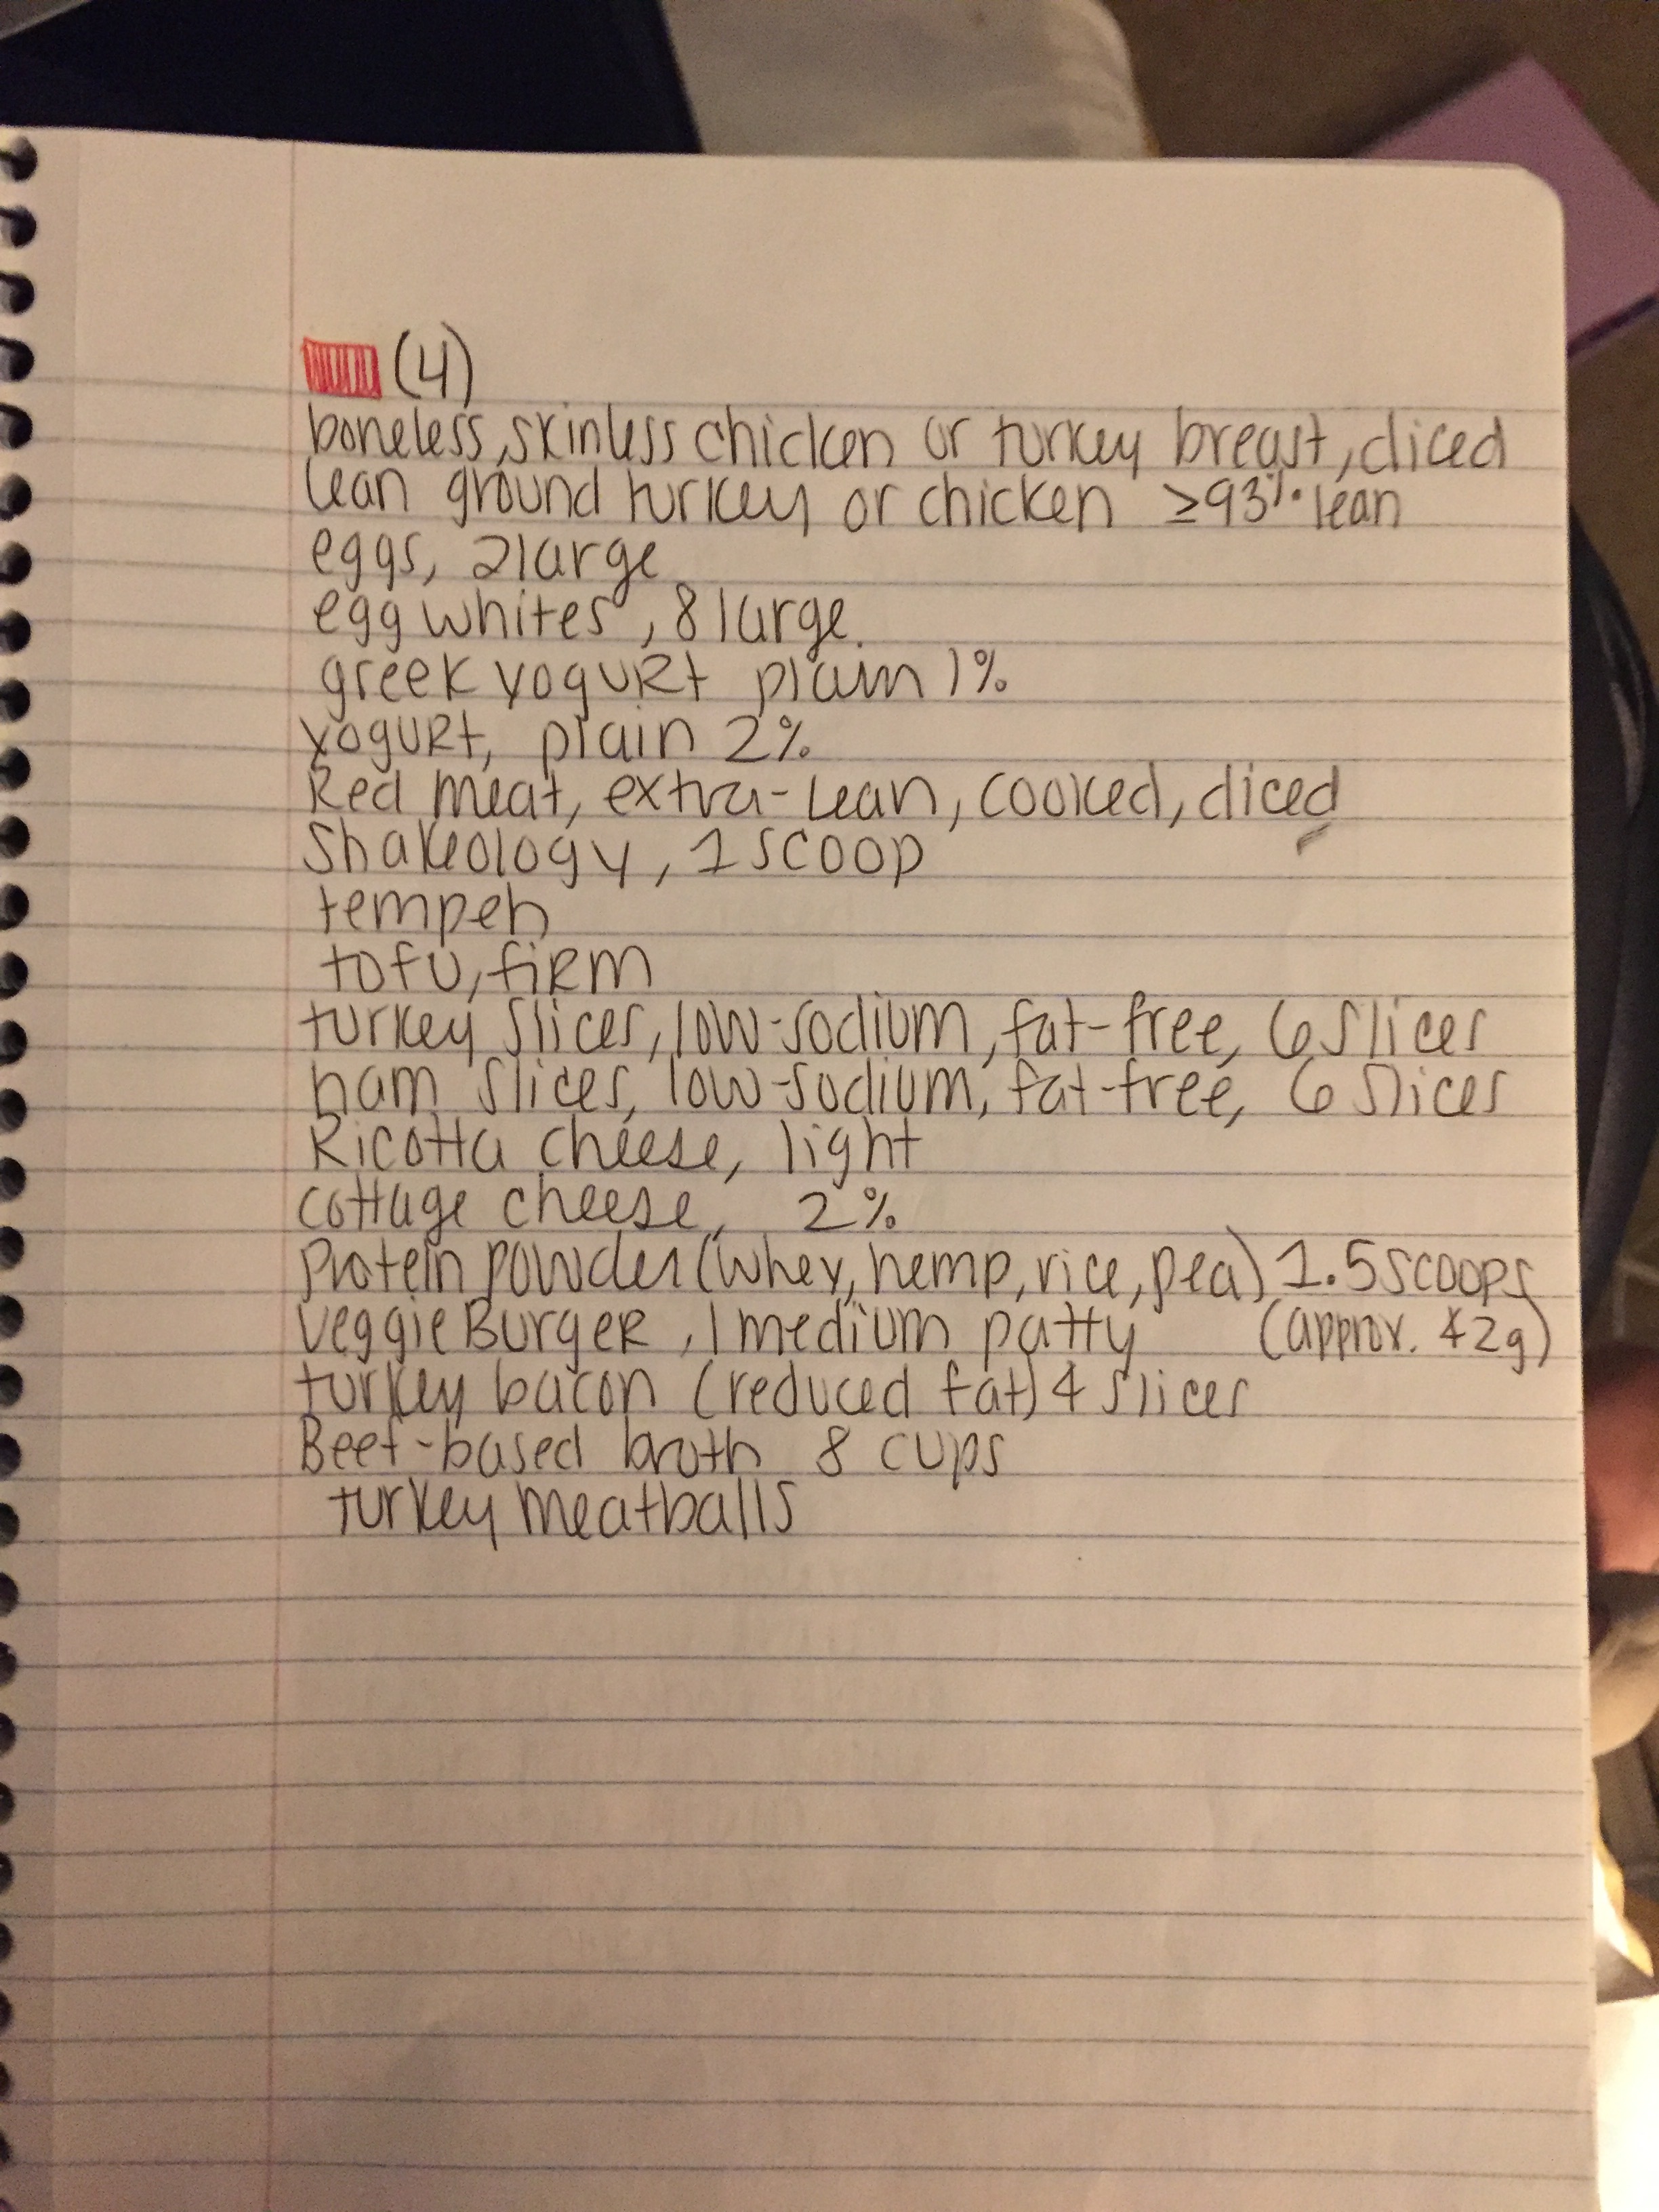 (4)
boneless, skinless chicken or turkey breast, diced
lean ground turkey or chicken ≥93% lean
eggs, 2 large
egg whites, 8 large
greek yogurt plain 1%
yogurt, plain 2%
Red meat, extra-lean, cooked, diced
Shakeology, 1 scoop
tempeh
tofu, firm
turkey slices, low-sodium, fat-free, 6 slices
ham slices, low-sodium, fat-free, 6 slices
Ricotta cheese, light
cottage cheese, 2%
Protein powder (whey, hemp, rice, pea) 1.5 scoops
Veggie Burger, 1 medium patty (approx. 42g)
turkey bacon (reduced fat) 4 slices
Beef-based broth 8 cups
turkey meatballs